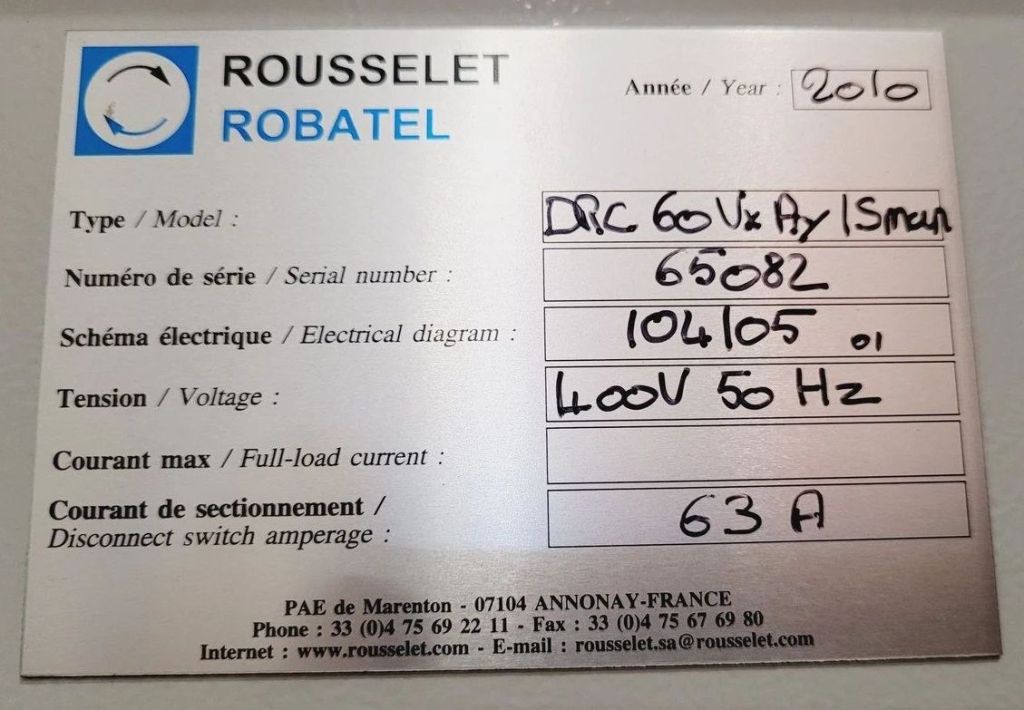 ROUSSELET
ROBATEL
Année / Year : 2010
Type / Model : DRC 60 Vx Ay
Numéro de série / Serial number : 65082
Schéma électrique / Electrical diagram : 104105 01
Tension / Voltage : 400V 50 Hz
Courant max / Full-load current :
Courant de sectionnement /
Disconnect switch amperage : 63 A
PAE de Marenton - 07104 ANNONAY-FRANCE
Phone : 33 (0)4 75 69 22 11 - Fax : 33 (0)4 75 67 69 80
Internet : www.rousselet.com - E-mail : rousselet.sa@rousselet.com